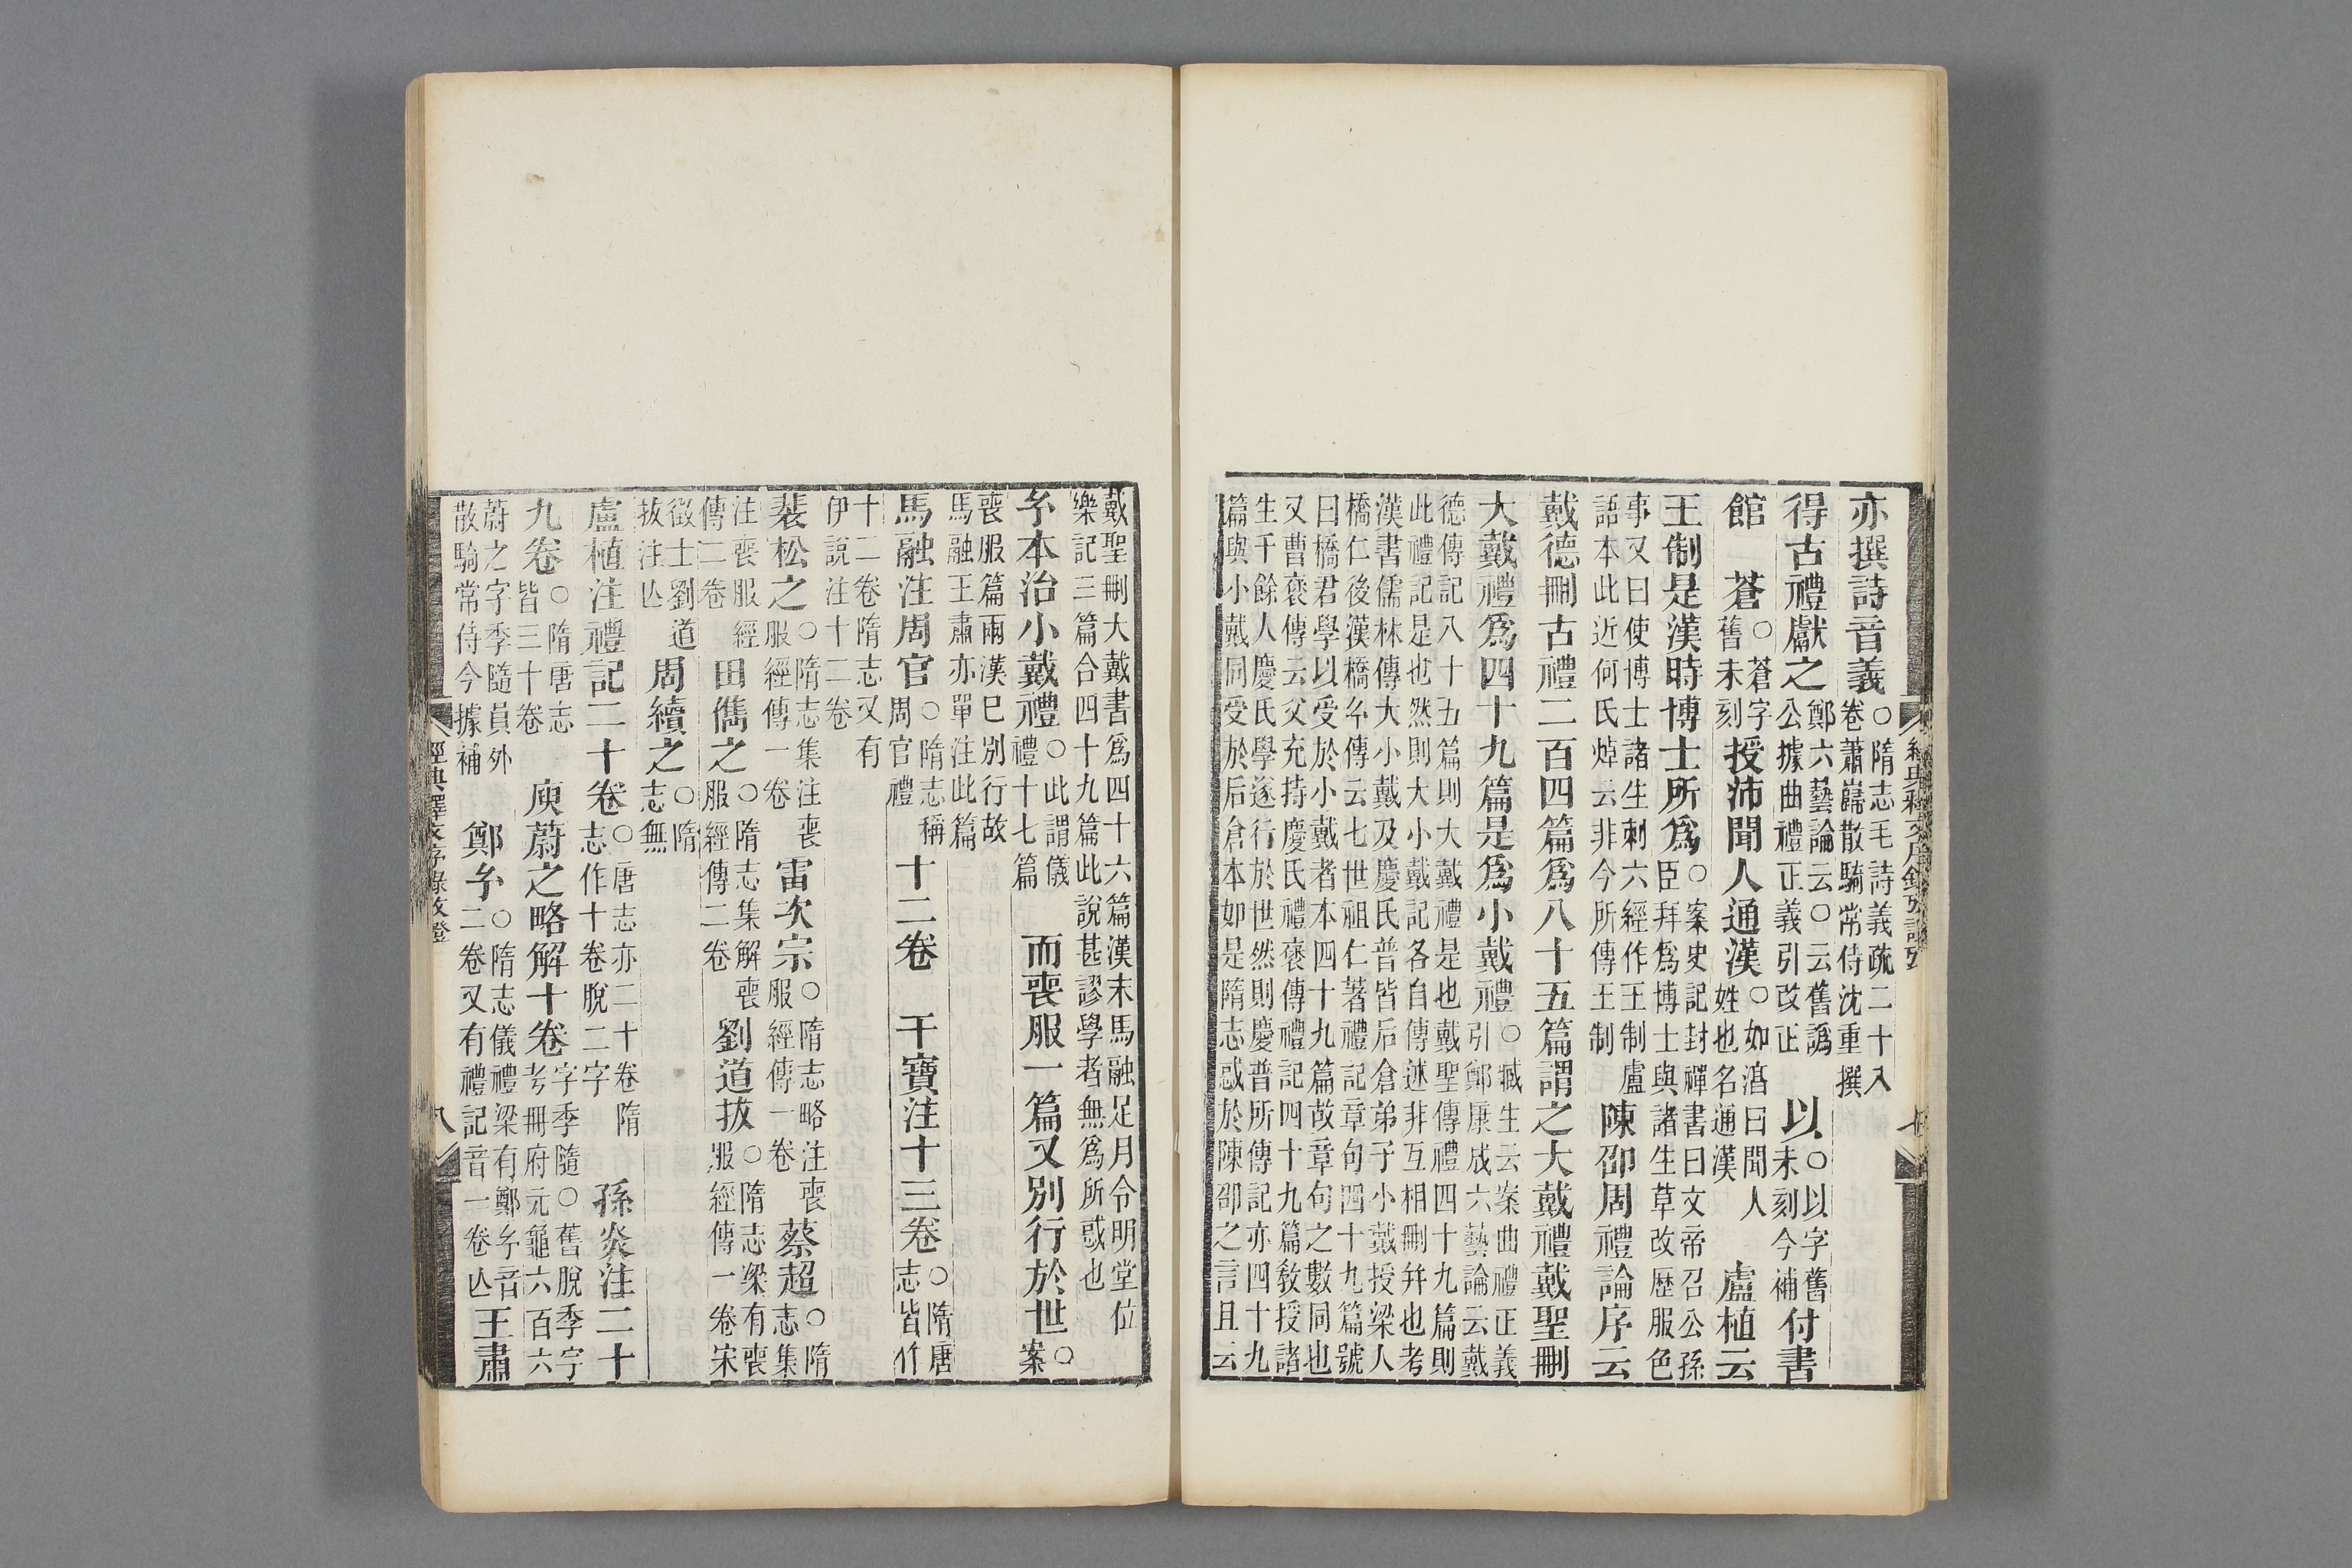 亦撰詩音義○隋志毛詩義疏二十八卷蕭巋散騎常侍沈重撰
得古禮獻之鄭六藝論云○云舊譌公據曲禮正義引改正以○以字舊未刻今補付書
館 蒼○蒼字舊未刻授沛聞人通漢○如湻曰聞人姓也名通漢盧植云
王制是漢時博士所爲○案史記封禪書曰文帝召公孫臣拜爲博士與諸生草改歷服色
事又曰使博士諸生刺六經作王制盧語本此近何氏焯云非今所傳王制陳邵周禮論序云
戴德刪古禮二百四篇爲八十五篇謂之大戴禮戴聖刪
大戴禮爲四十九篇是爲小戴禮○臧生云案曲禮正義引鄭康成六藝論云戴
德傳記八十五篇則大戴禮是也戴聖傳禮四十九篇則此禮記是也然則大小戴記各自傳述非互相刪幷也考
漢書儒林傳大小戴及慶氏普皆后倉弟子小戴授梁人橋仁後漢橋㝸傳云七世祖仁著禮記章句四十九篇號
曰橋君學以受於小戴者本四十九篇故章句之數同也又曹襃傳云父充持慶氏禮襃傳禮記四十九篇敎授諸
生千餘人慶氏學遂行於世然則慶普所傳記亦四十九篇與小戴同受於后倉本如是隋志惑於陳邵之言且云
戴聖刪大戴書爲四十六篇漢末馬融足月令明堂位樂記三篇合四十九篇此說甚謬學者無爲所惑也
㝸本治小戴禮○此謂儀禮十七篇而喪服一篇又別行於世○案
喪服篇兩漢已別行故馬融王肅亦單注此篇
馬融注周官○隋志稱周官禮十二卷 干寶注十三卷○隋唐志皆作
十二卷隋志又有伊說注十二卷
裴松之○隋志集注喪服經傳一卷雷次宗○隋志略注喪服經傳一卷蔡超○隋志集
注喪服經傳二卷田儁之○隋志集解喪服經傳二卷劉道拔○隋志梁有喪服經傳一卷宋
徵士劉道拔注亾周續之○隋志無
盧植注禮記二十卷○唐志亦二十卷隋志作十卷脫二字孫炎注二十
九卷○隋唐志皆三十卷庾蔚之略解十卷字季隨○舊脫季字考冊府元龜六百六
蔚之字季隨員外散騎常侍今據補鄭㝸○隋志儀禮梁有鄭㝸音二卷又有禮記音一卷亾王肅
經典釋文序錄攷證
八